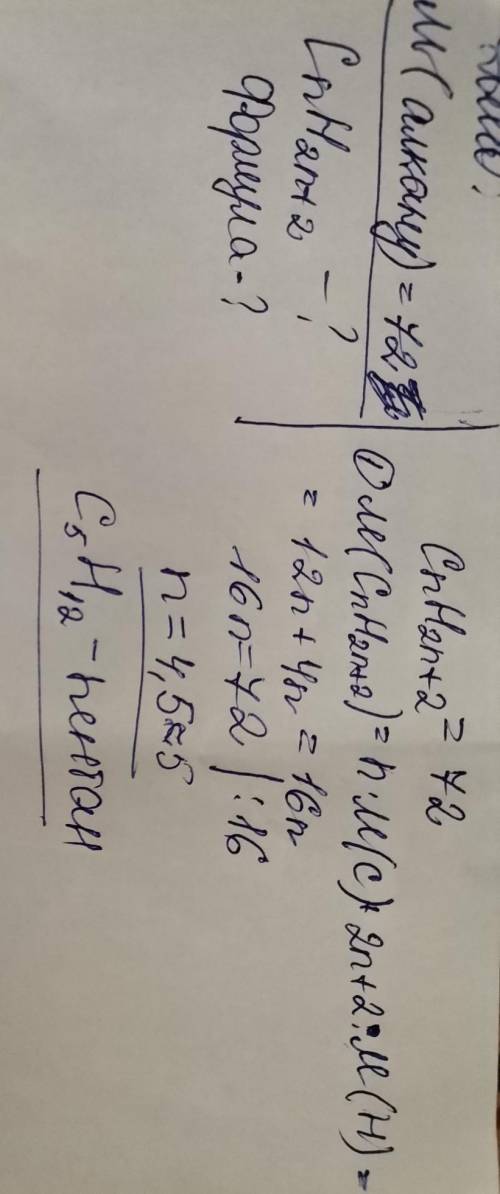 М(алкану) = 72
CnH2n+2 - ?
Формула - ?
CnH2n+2 = 72
① М(CnH2n+2) = n·М(C)* 2n+2·М(H) =
= 12n + 4n = 16n
16n = 72 | :16
n = 4,5≈5
C5H12 - пентан